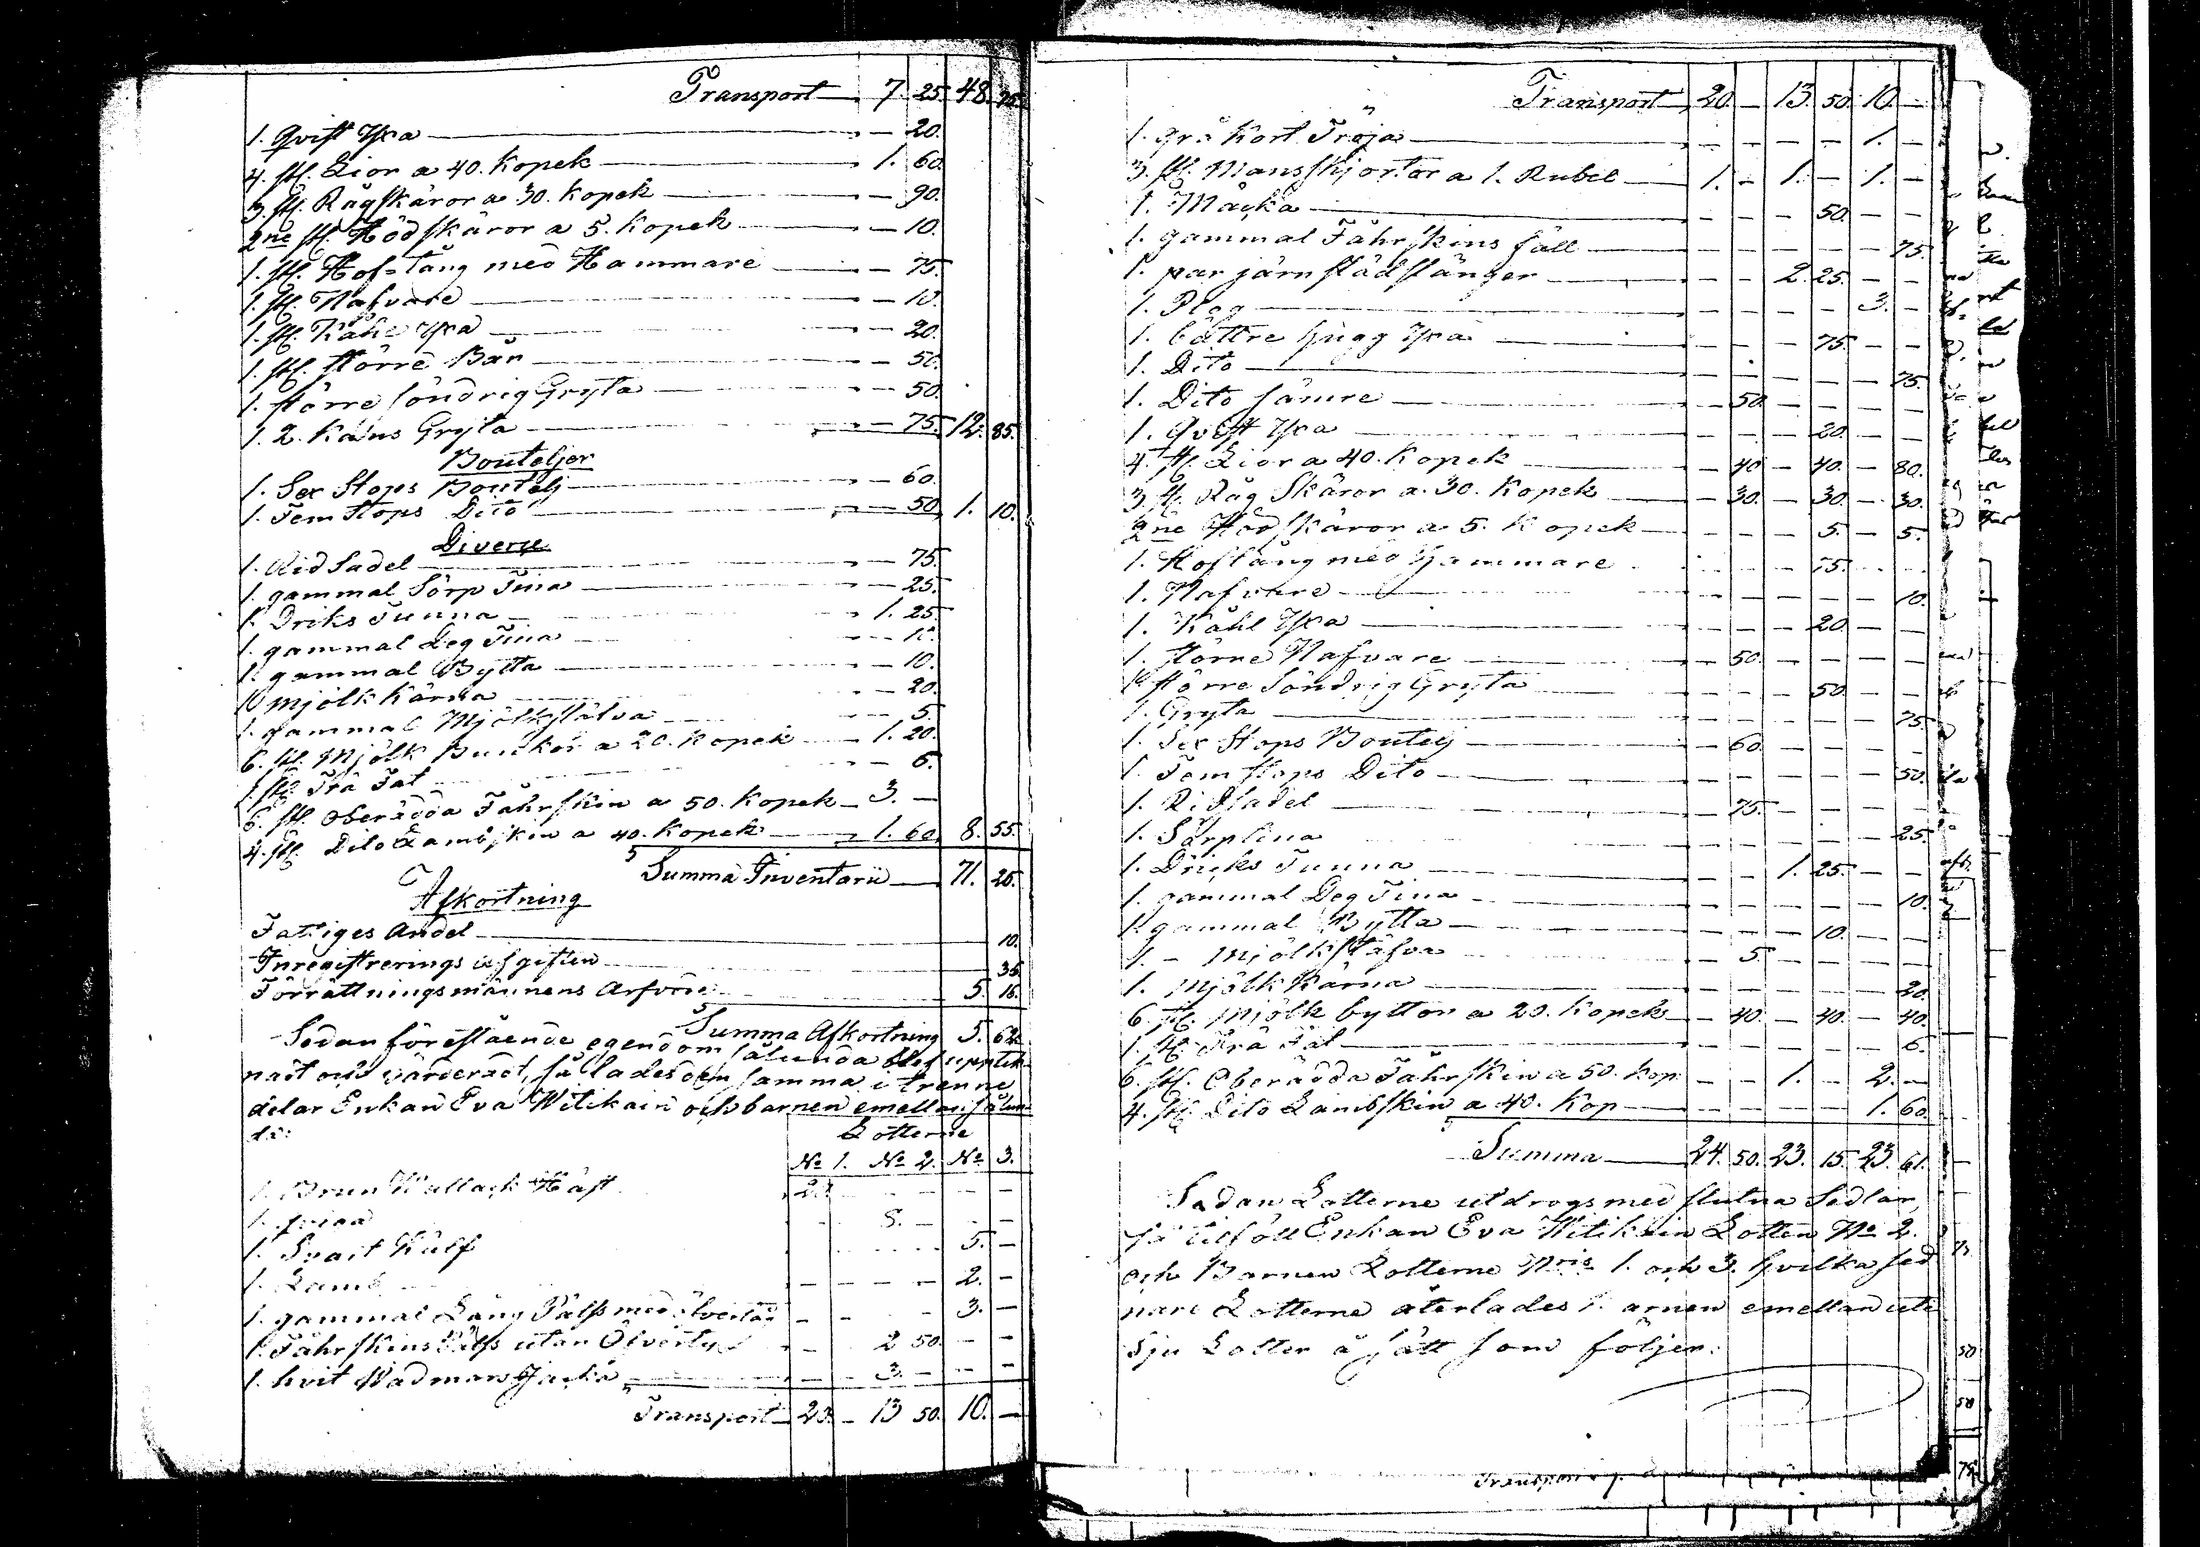 Transport 7. 25. 48. 75.
1. Qvist Yxa — 20.
4. st. Lior a 40. Kopek 1. 60.
3. st. Rågskäror a 30. Kopek — 90.
2ne st. Hödskäror a 5. Kopek — 10.
1. st. Hof-tång med Hammare — 75.
1. st. Nafvare — 10.
1. st. Kåhl Yxa — 20.
1. st. större — 50.
1. större söndrig Gryta — 50.
1. 2. Kans Gryta — 75. 12. 85.
Bouteljer
1. Sex Stops Boutelj — 60.
1. Fem Stops Dito — 50. 1. 10.
Diverse
1. Rid Sadel — 75.
1. gammal Sörp Tina — 25.
1. Driks Tunna 1. 25.
1. gammal Deg Tina — 10.
1. gammal Bytta — 10.
1. mjölk Kärna — 20.
1. gammal Mjölkstäfva — 5.
6. st. Mjölk Bunkor a 20. Kopek 1. 20.
1. st. Trä Fat — 6.
6. st. Oberädda Fåhrskin a 50. Kopek 3. —
4. st. Dito Lambskin a 40. Kopek 1. 60. 8. 55.
Summa Inventarii 71. 26.
Afkortning
Fattiges Andel 10.
Inregistrerings afgiften 36.
Förrättningsmännens Arfvode 5. 16.
Summa Afkortning 5. 62.
Sedan förestående egendom sålunda blef upptek-
nad och värderad, så lades den samma i trenne
delar Enkan Eva Witikain och barnen emellan sålun-
da:
Lotterne
No 1. No 2. No 3.
1. Brun Wallack Häst 20. — — — — —
1. — 8. — — —
1. Svart Kalf 5. —
1. Lamb — — — — 2. —
1. gammal Lång Pälss med — — — 3. —
1. Fåhrskins Pälss utan Öfvertyg — — 2 50. — —
1. hvit Wadmans Jacka — — 3. — — —
Transport 20. — 13 50. 10. —
Transport 20. — 13. 50. 10. —
1. grå Kort Tröja — — — — 1. —
3. st. Mansskjortor a 1. Rubel 1. — 1. — 1. —
1. — — — 50. — —
1. gammal Fåhrskins fäll — — — — — 75.
1. par järn städstänger — — 2. 25. — —
1. Plog — — — — 3. —
1. bättre hugg Yxa — — — 75. — —
1. Dito — — — — — 75.
1. Dito sämre — 50. — — — —
1. Qvist Yxa — — — 20. — —
4. st. Lior a 40. Kopek — 40. — 40. — 80.
3. st. Råg Skäror a. 30. Kopek — 30. — 30. — 30.
2ne Hödskäror a 5. Kopek — — — 5. — 5.
1. Hoftång med Hammare — — — 75. — —
1. Nafvare — — — — — 10.
1. Kåhl Yxa — — — 20. — —
1. större Nafvare — 50. — — — —
1. större söndrig Gryta — — — 50. — —
1. Gryta — — — — — 75.
1. Sex Stops Boutelj — 60. — — — —
1. Fem stops Dito — — — — — 50.
1. Ridsadel — 75. — — — —
1. Sörptina — — — — — 25.
1. Dricks Tunna — — 1. 25. — —
1. gammal Deg Tina — — — — — 10.
1. gammal Bytta — — — 10. — —
1. — mjölkstäfva — 5. — — — —
1. mjölk Kärna — — — — — 20.
6. st. Mjölk byttor a 20. Kopek — 40. — 40. — 40.
1. st. Trä Fat — — — — — 6.
6. st. Oberädda Fåhrskin a 50. Kop. — — 1. — 2. —
4. st. Dito Lambskin a 40. Kop — — — — 1. 60.
Summa 24. 50. 23. 15. 23. 61.
Sedan Lotterne utdrogs med slutna Sedlar,
så tilföll Enkan Eva Witikain Lotten No 2.
och Barnen Lotterne Nris 1. och 3. hvilka sed-
nare Lotterne återlades barnen emellan uti
Sju Lotter å sätt som följer.
Transport